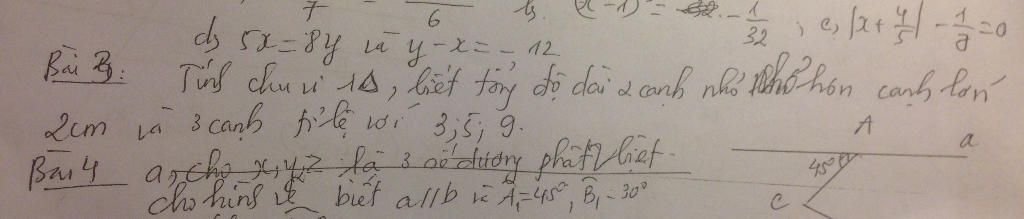 7
6
(x-1) = -1/32 ; c, |x + 4/5| - 1/7 = 0
d, 5x = 8y và y - x = -12
Bài 3: Tính chu vi 1Δ, biết tổng độ dài 2 cạnh nhỏ hơn cạnh lớn
2cm và 3 cạnh tỉ lệ với 3; 5; 9.
Bài 4 a, cho x, y, z là 3 số dương phân biệt.
Cho hình vẽ biết a//b và Â₁=45°, B̂₁=30°
A
a
45°
C